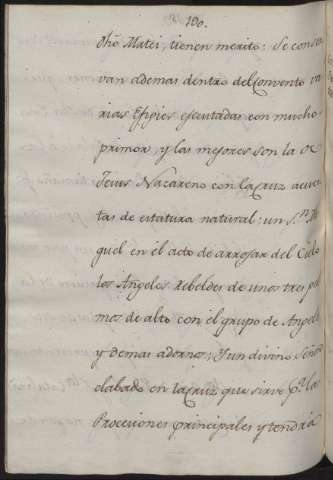 100.
dho Matei, tienen merito: Se conser
van ademas dentro del Convento va
rias Efigies ejecutadas con mucho
primor, y las mejores son la de
Jesus Nazareno con la cruz acues
tas de estatura natural: un Sn. Mi
guel en el acto de arrojar del Cielo
los Angeles Rebeldes de unos tres pal
mos de alto con el grupo de Angeles
y demas adornos; Y un divino Señor
clabado en la cruz que sirve pa. las
Procesiones principales y tendrá